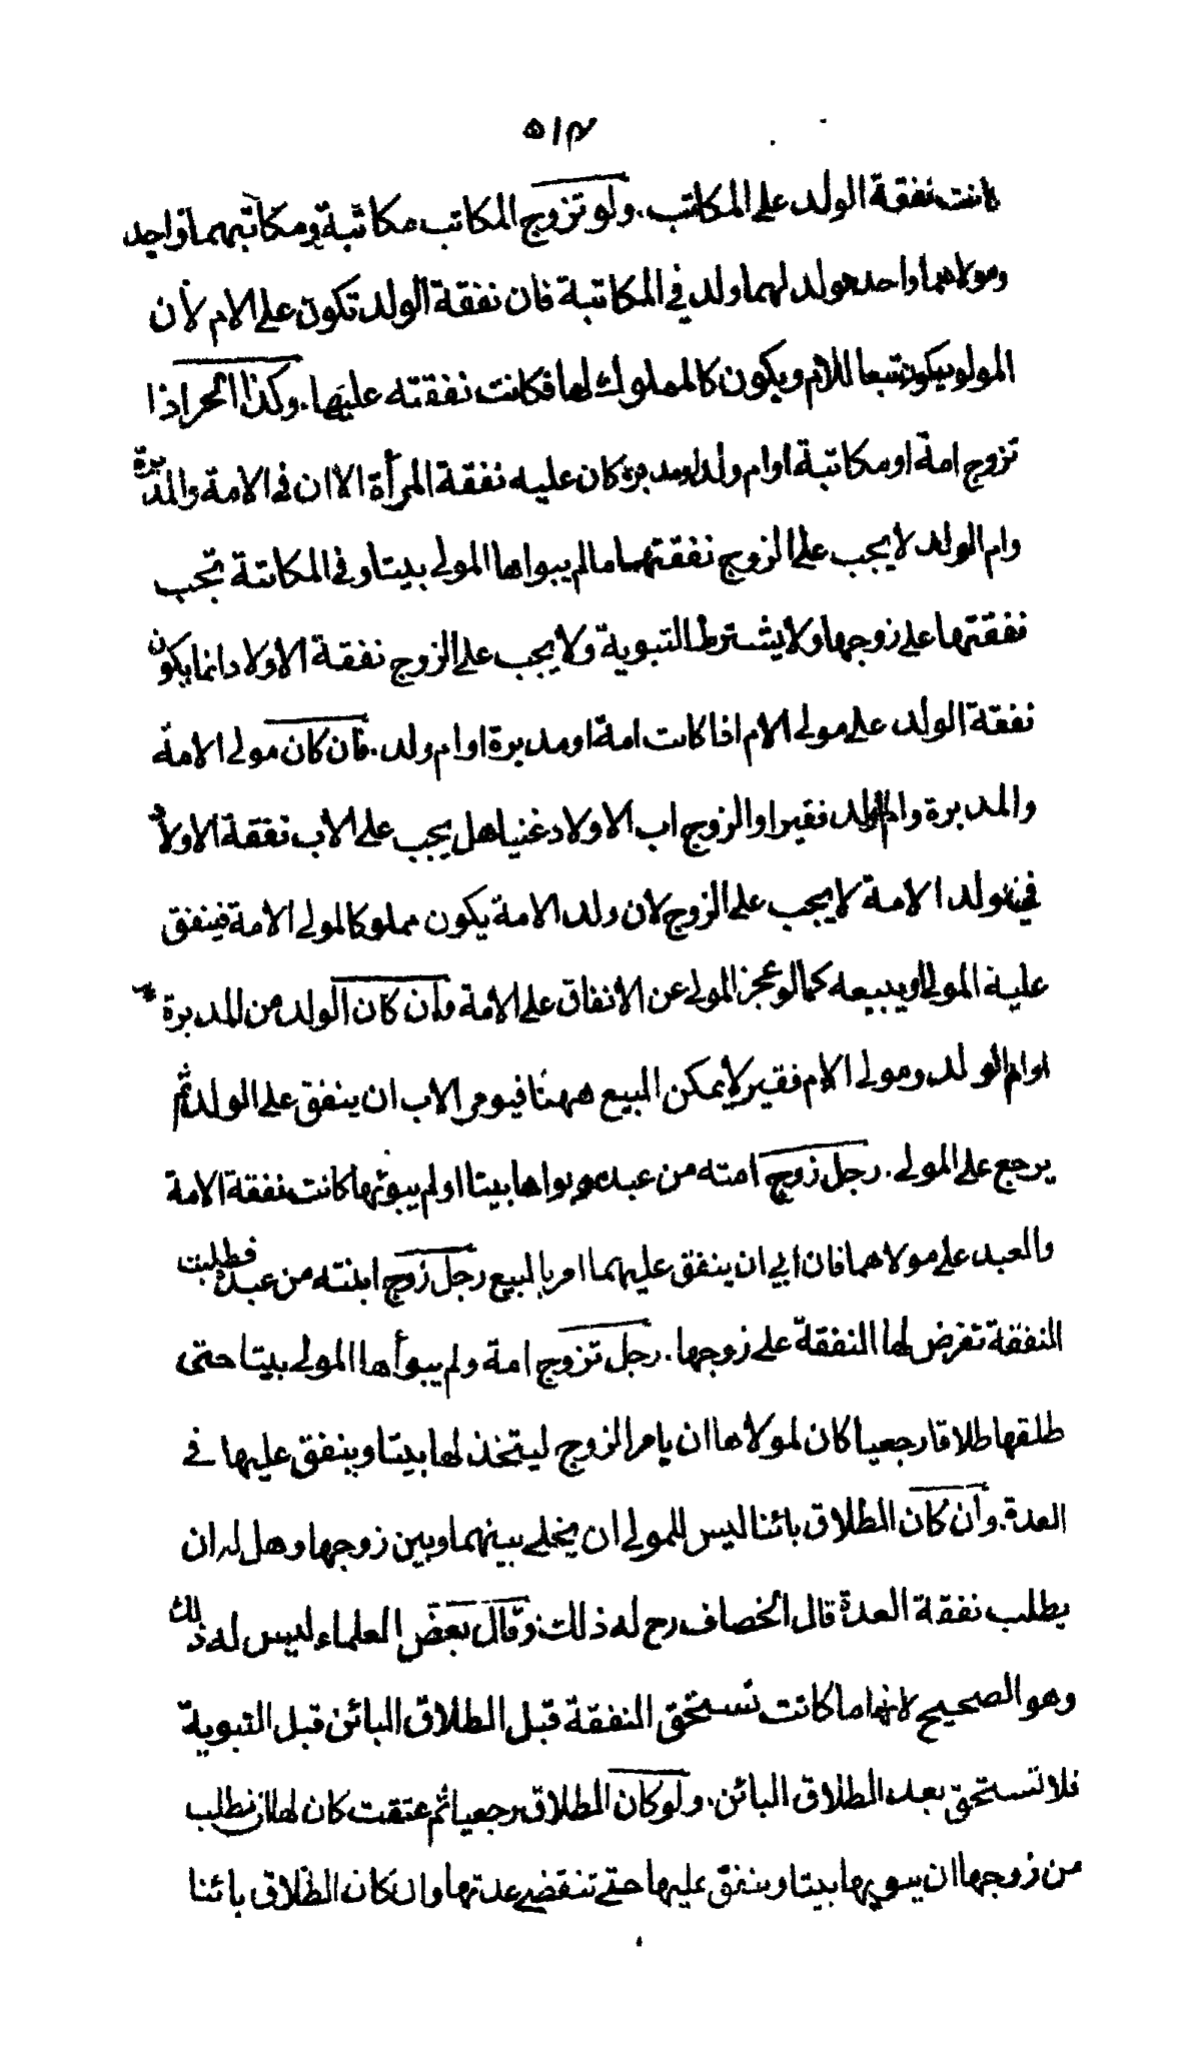 ٥١٣
كانت نفقة الولد على المكاتب. ولو تزوج المكاتب مكاتبة ومكاتبهما واحد
ومولاهما واحد فولد لهما ولد في المكاتبة فان نفقة الولد تكون على الام لأن
المولود يكون تبعا للام ويكون كالمملوك لها فكانت نفقته عليها. وكذا الحر اذا
تزوج امة او مكاتبة او ام ولد او مدبرة كان عليه نفقة المرأة الا ان في الامة والمدبرة
وام الولد لا يجب على الزوج نفقتها ما لم يبواها المولى بيتا وفي المكاتبة تجب
نفقتها على زوجها ولا يشترط التبوية ولا يجب على الزوج نفقة الاولاد انما يكون
نفقة الولد على مولى الام اذا كانت امة او مدبرة او ام ولد. فان كان مولى الامة
والمدبرة وام الولد فقيرا والزوج اب الاولاد غنيا هل يجب على الاب نفقة الاولاد
ففي ولد الامة لا يجب على الزوج لان ولد الامة يكون مملوكا لمولى الامة فينفق
عليه المولى او يبيعه كما لو عجز المولى عن الانفاق على الامة وان كان الولد من المدبرة
او ام الولد ومولى الام فقير لا يمكن البيع ههنا فيومر الاب ان ينفق على الولد ثم
يرجع على المولى. رجل زوج امته من عبده وبواها بيتا او لم يبوئها كانت نفقة الامة
والعبد على مولاهما فان ابي ان ينفق عليهما امر بالبيع رجل زوج ابنته من عبده فطلبت
النفقة تفرض لها النفقة على زوجها. رجل تزوج امة ولم يبوأها المولى بيتا حتى
طلقها طلاقا رجعيا كان لمولاها ان يامر الزوج ليتخذ لها بيتا وينفق عليها في
العدة. وان كان الطلاق بائنا ليس للمولى ان يخلي بينهما وبين زوجها وهل له ان
يطلب نفقة العدة قال الخصاف رح له ذلك وقال بعض العلماء ليس له ذلك
وهو الصحيح لانها ما كانت تستحق النفقة قبل الطلاق البائن قبل التبوية
فلا تستحق بعد الطلاق البائن. ولو كان الطلاق رجعيا ثم عتقت كان لها ان تطلب
من زوجها ان يبويها بيتا وينفق عليها حتى تنقضي عدتها وان كان الطلاق بائنا